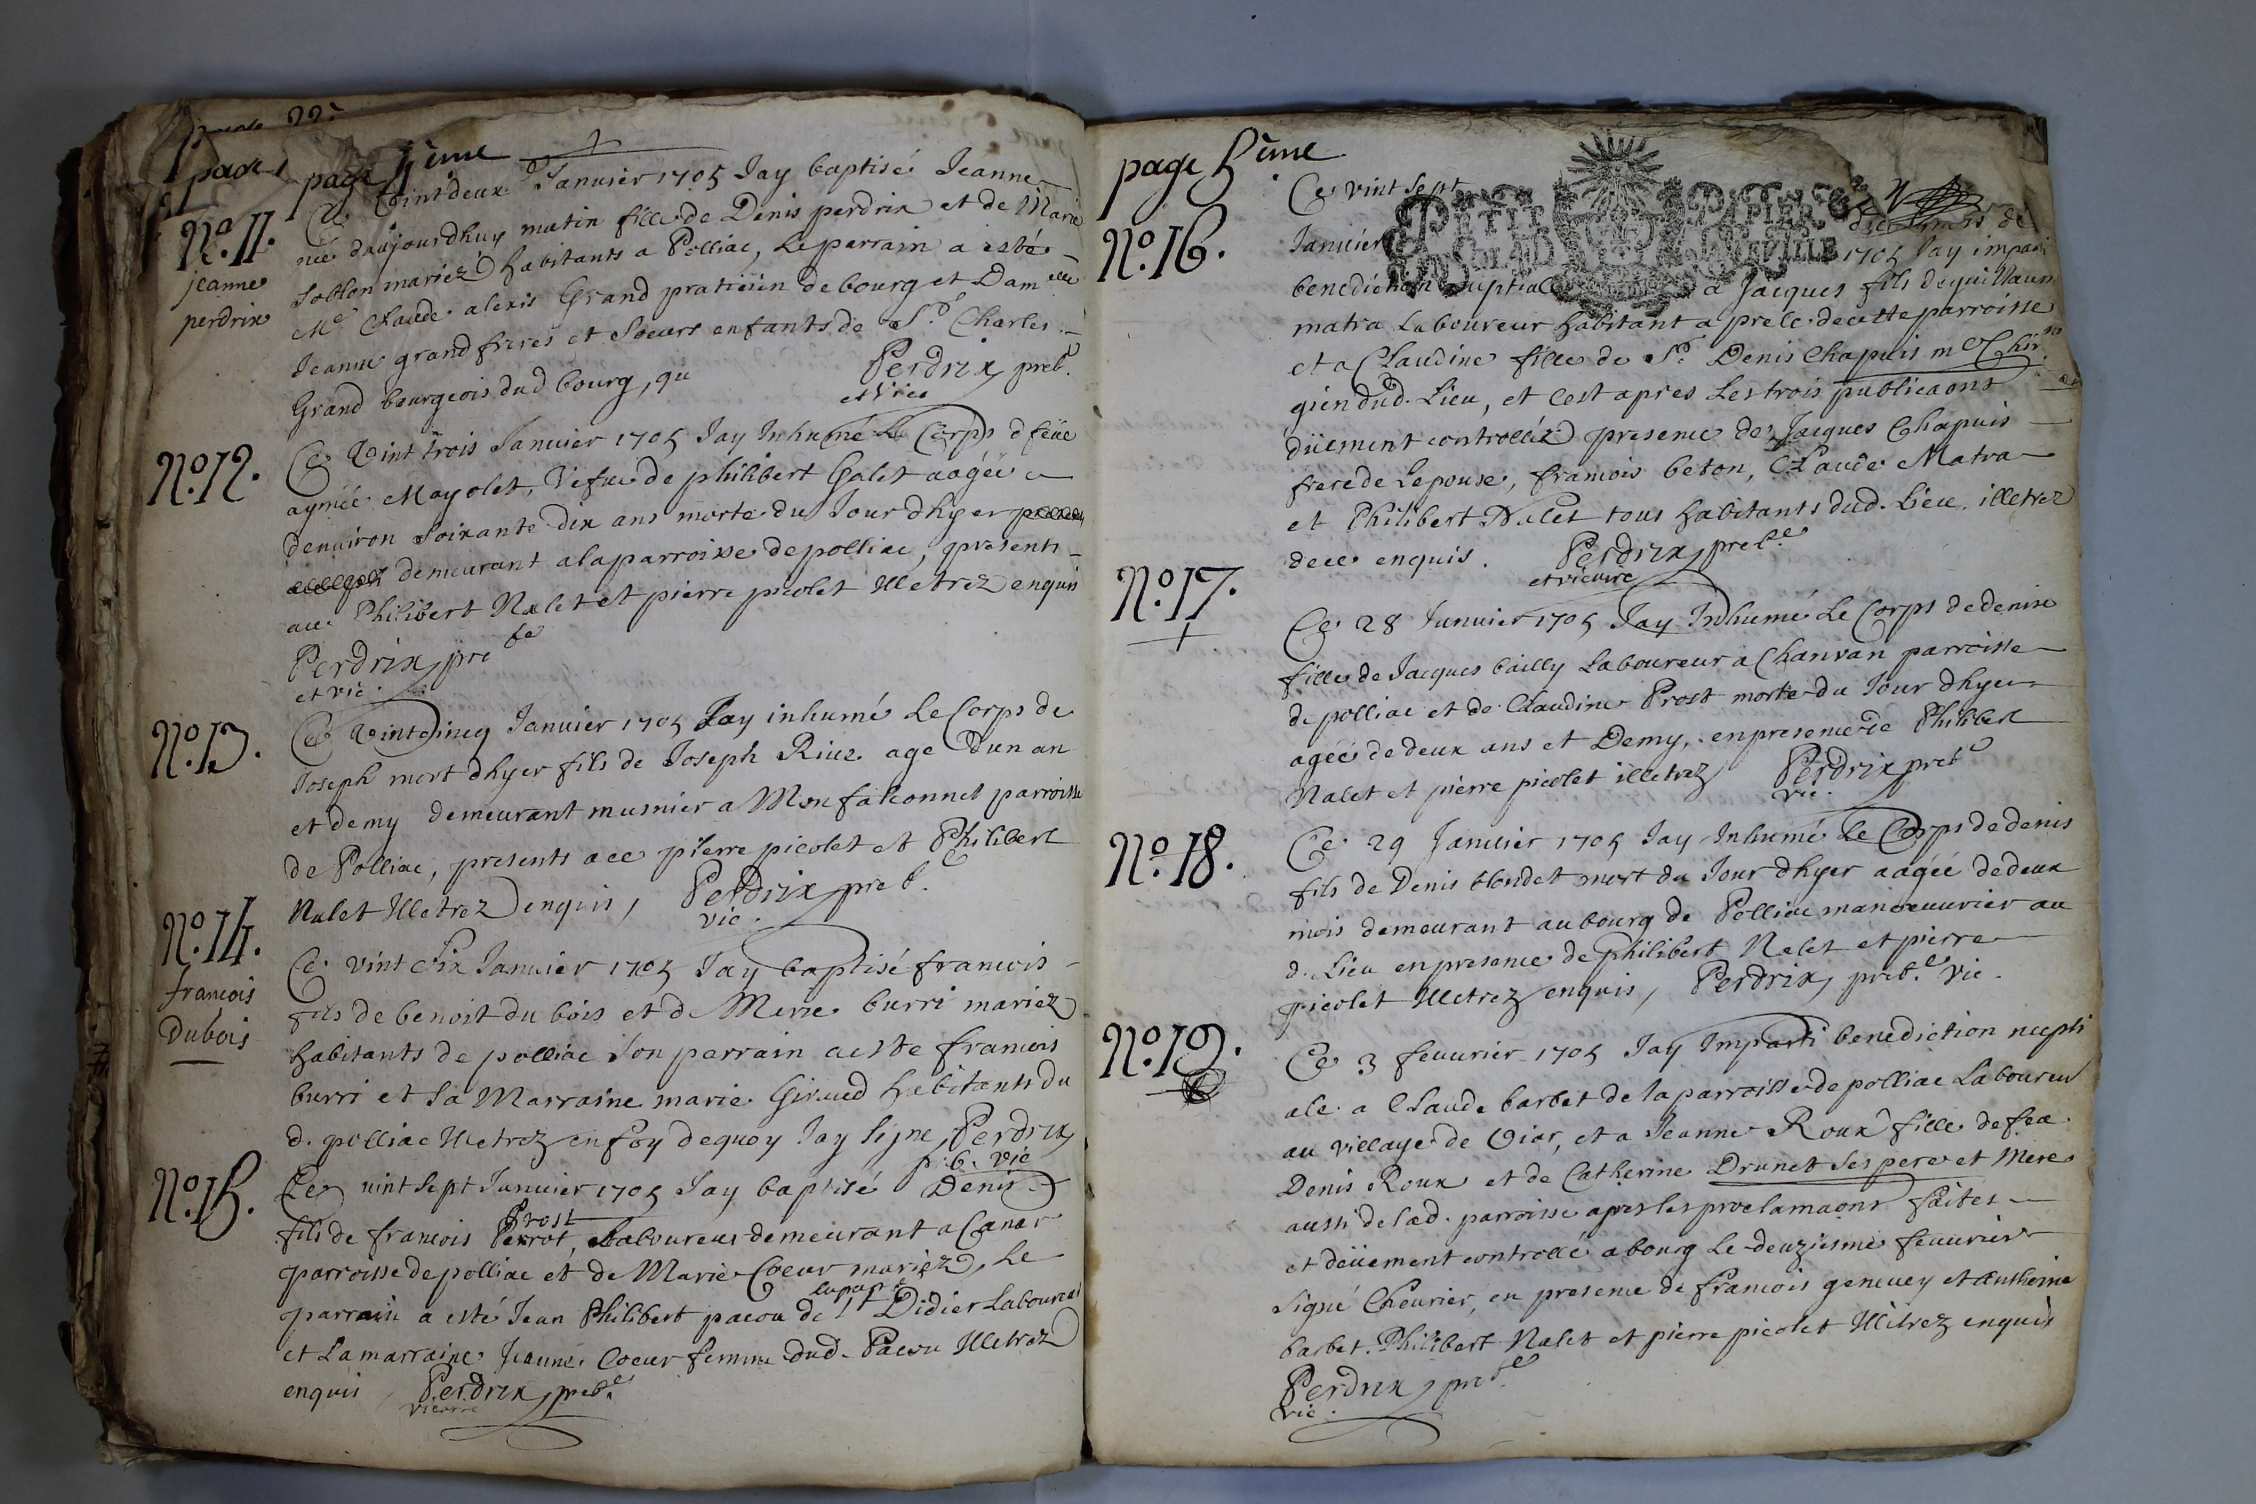 page 4eme
No. 11.
jeanne
perdrix
Ce vint deux Januier 1705 Jay baptisé Jeanne
née daujourdhuy matin fille de Denis perdrix et de Marie
Loblon mariez habitants a Polliac, Le parrain a esté
Me Claude alexis Grand praticien de bourg et Damelle
Jeanne grand freres et Soeurs enfants de Sr. Charles
Grand bourgeois dud bourg, qu
Perdrix, preb.
et vice
No. 12.
Ce Vint trois Januier 1705 Jay Inhumé Le Corps d feüe
aymée Mayolet, Vefue de philibert Galet aagée
denuiron Soixante dix ans morte du Jour dhyer
demeurant a la parroisse de polliac, presents
auc Philibert Nalet et pierre picolet Illetrez enquis
Perdrix, pre be
et vic.
No. 13.
Ce Vint Cinq Januier 1705 Jay inhumé Le Corps de
Joseph mort dhyer fils de Joseph Riue age dun an
et demy demeurant musnier a Monfalconnet parroisse
de Polliac, presents ace pierre picolet et Philibert
Nalet Illetrez enquis, Perdrix, preb.e
vic.
No. 14.
francois
Dubois
Ce vint Six Januier 1705 Jay baptisé francois
fils de benoit du bois et d Merie burri mariez
habitants de polliac Son parrain a esté francois
burri et Sa Marraine marie Giraud habitants du
d. polliac Illetrez en foy dequoy Jay signe, Perdrix,
p.b. vic
No. 15.
Ce vint Sept Januier 1705 Jay baptisé Denis
Prost
fils de francois Perrot, Laboureur demeurant a Canar
parroisse de polliac et de Marie Coeur mariez, Le
parrain a esté Jean Philibert pacou de St Didier Laboureur
et La marraine Jeanne Coeur femme dud. Pacou Illetrez
enquis, Perdrix, preb.e
vicaire
page 5eme
No. 16.
Ce vint Sept
PETIT PAPIER
Januier 1705 Jay imparti
benediction nuptiale a Jacques fils de guillaum
matra Laboureur habitant a prele de cette parroisse
et a Claudine fille de Sr. Denis Chapuis me Chirur
gien dud. Lieu, et cest apres Les trois publicaons
düement controllez presence de Jacques Chapuis
frere de Lepouse, francois beton, Claude Matra
et Philibert Nalet tous habitants dud. Lieu, illetrez
de ce enquis. Perdrix, preb.e
et vicaire
No. 17.
Ce 28 Januier 1705 Jay Inhumé Le Corps de denise
fille de Jacques bailly Laboureur a Chanvan parroisse
de polliac et de Claudine Prost morte du Jour dhyer
agée de deux ans et Demy, en presence de Philibert
Nalet et pierre picolet illetrez, Perdrix, preb.e
vic.
No. 18.
Ce 29 Januier 1705 Jay Inhumé Le Corps de denis
fils de Denis blondet mort du Jour dhyer aagée de deux
mois demeurant au bourg de Polliac manoeuurier au
d. Lieu en presence de philibert Nalet et pierre
picolet Illetrez enquis, Perdrix, preb.e vic.
No. 19.
Ce 3 feuurier 1705 Jay Imparti benediction nupti
ale a Claude barbet de la parroisse de polliac Laboureur
au village de Vior, et a Jeanne Roux fille de feu
Denis Roux et de Catherine Drunet Ses pere et Mere
aussi de lad. parroisse apres les proclamaons faites
et deüement controllé a bourg Le deuziesme feuurier
Signé Cheurier, en presence de francois geneuey et anthoine
barbet. Philibert Nalet et pierre picolet Illitrez enquis
Perdrix, preb.e
vic.